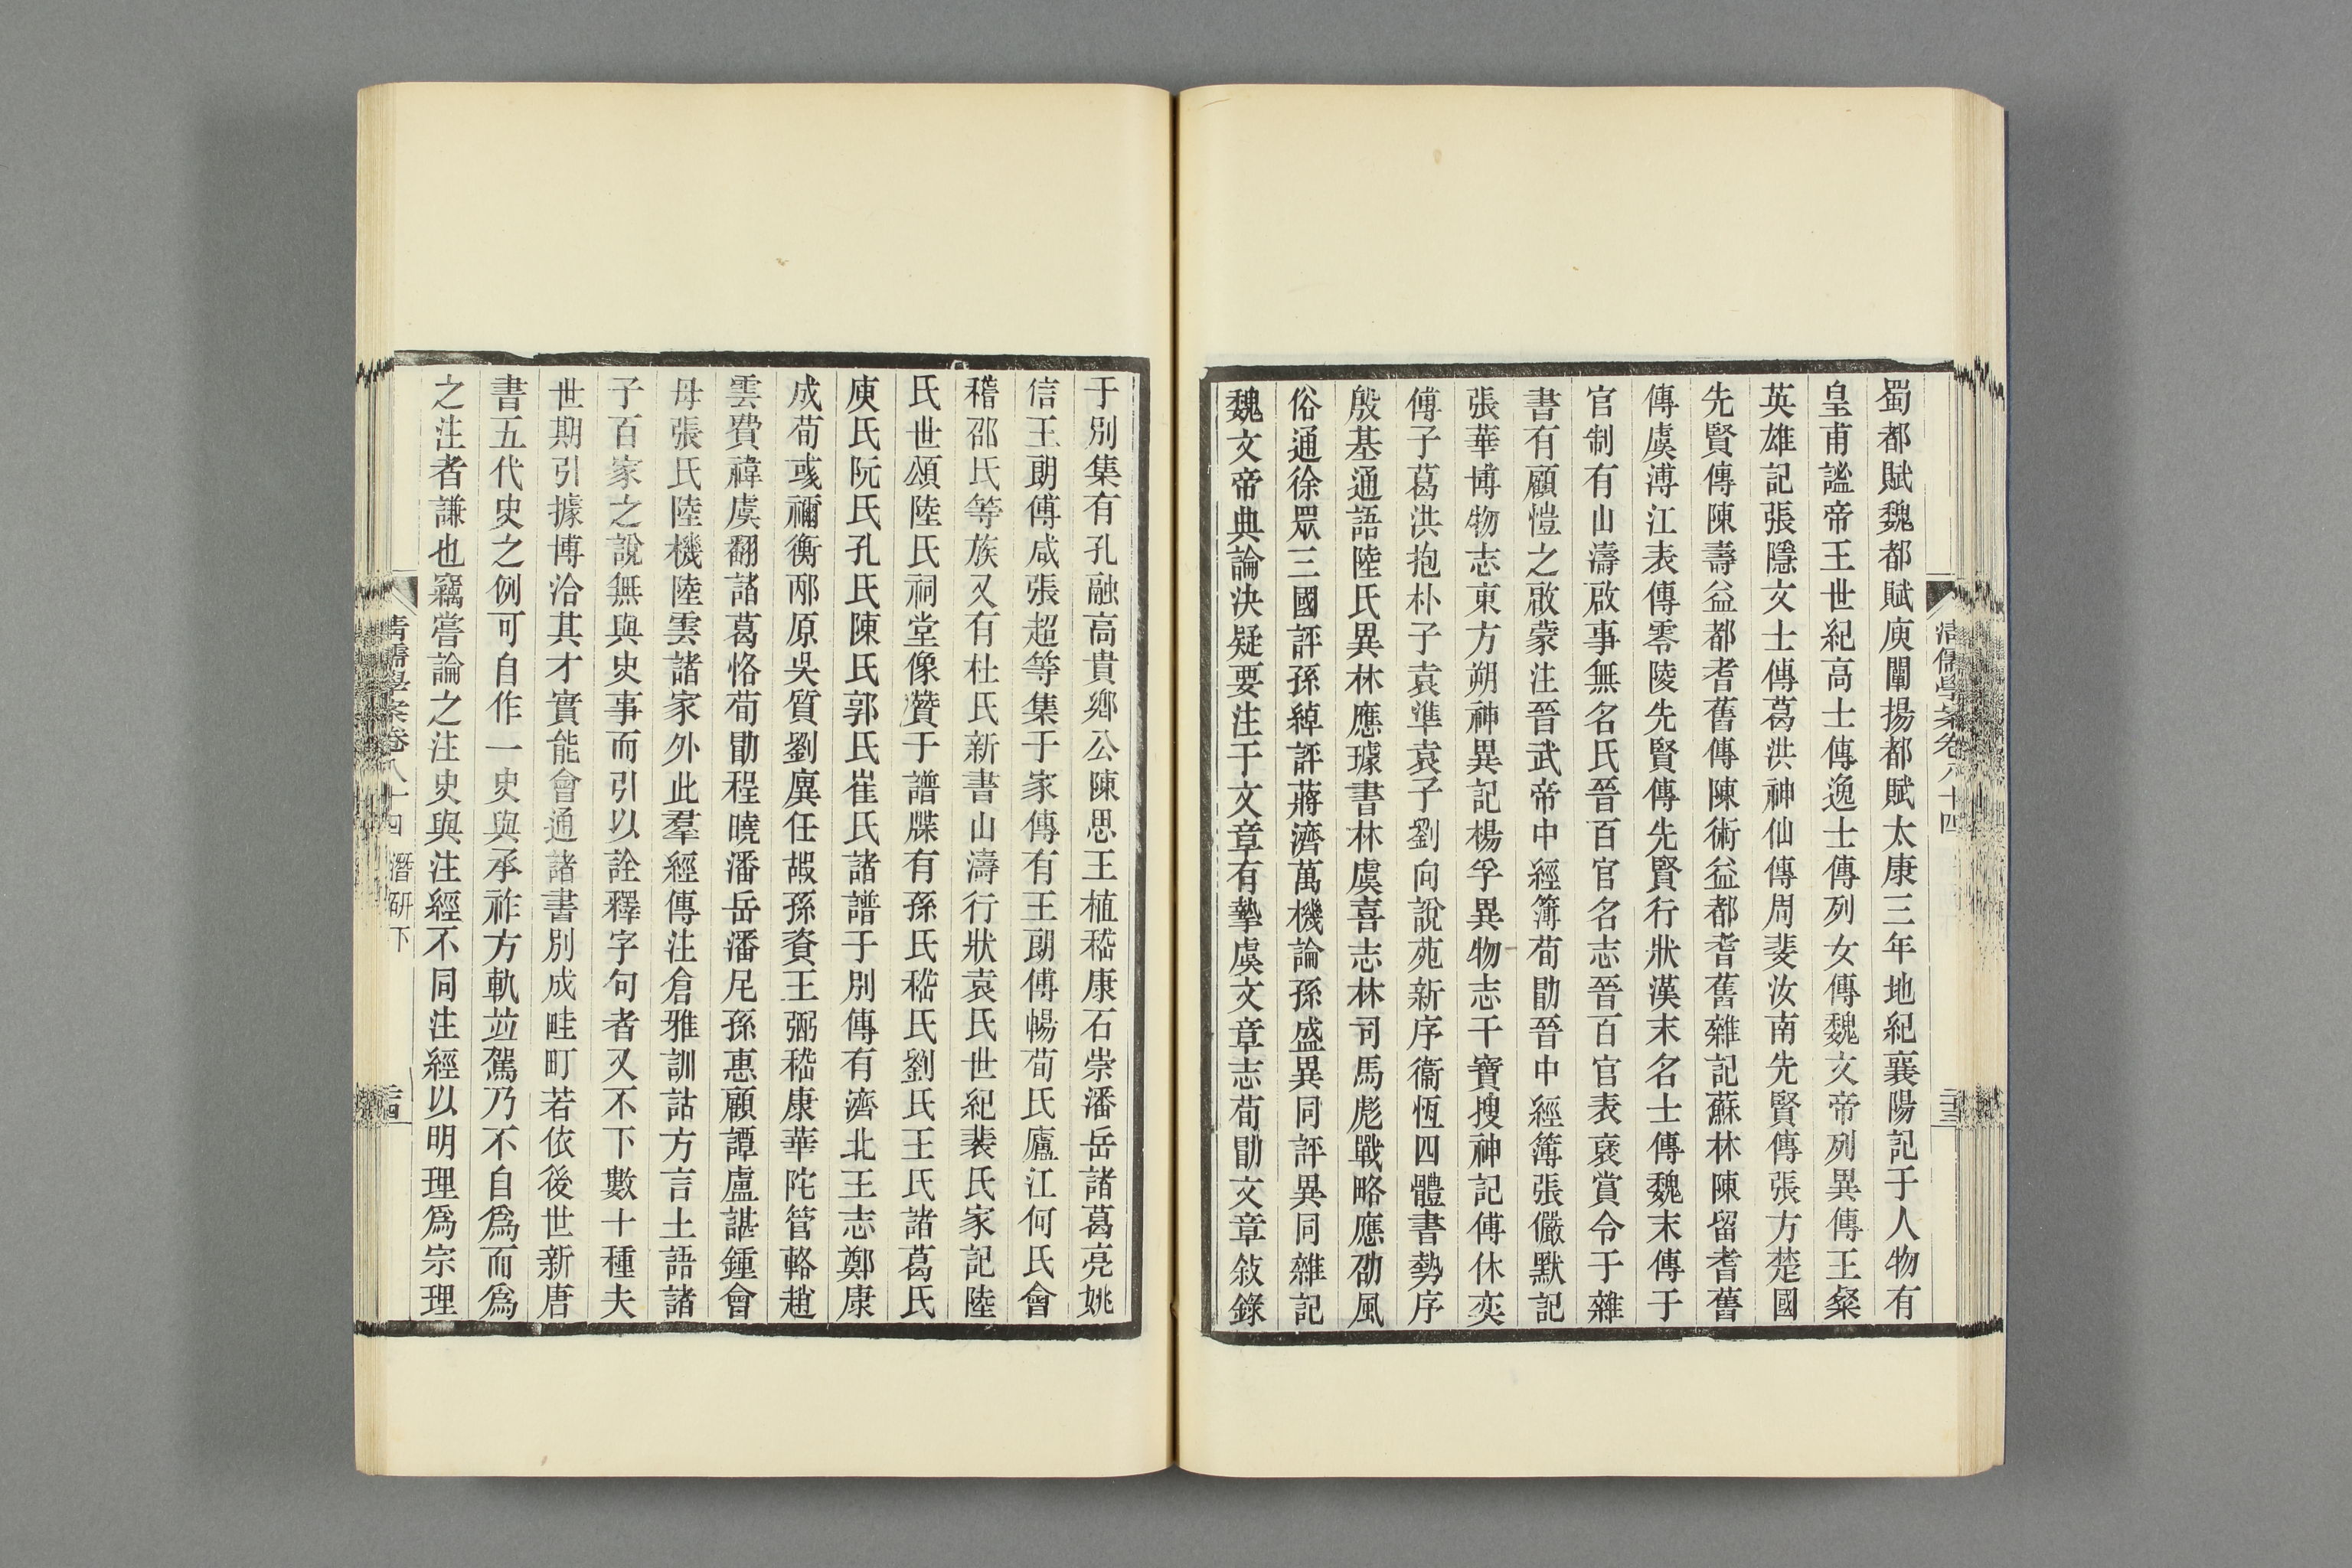 清儒學案卷八十四
二十三
蜀都賦魏都賦庾闡揚都賦太康三年地紀襄陽記于人物有
皇甫謐帝王世紀高士傳逸士傳列女傳魏文帝列異傳王粲
英雄記張隱文士傳葛洪神仙傳周斐汝南先賢傳張方楚國
先賢傳陳壽益都耆舊傳陳術益都耆舊雜記蘇林陳留耆舊
傳虞溥江表傳零陵先賢傳先賢行狀漢末名士傳魏末傳于
官制有山濤啟事無名氏晉百官名志晉百官表褒賞令于雜
書有顧愷之啟蒙注晉武帝中經簿荀勖晉中經簿張儼默記
張華博物志東方朔神異記楊孚異物志干寶搜神記傅休奕
傅子葛洪抱朴子袁準袁子劉向說苑新序衞恆四體書勢序
殷基通語陸氏異林應璩書林虞喜志林司馬彪戰略應劭風
俗通徐眾三國評孫綽評蔣濟萬機論孫盛異同評異同雜記
魏文帝典論決疑要注于文章有摯虞文章志荀勖文章敍錄
于別集有孔融高貴鄉公陳思王植嵇康石崇潘岳諸葛亮姚
信王朗傅咸張超等集于家傳有王朗傅暢荀氏廬江何氏會
稽邵氏等族又有杜氏新書山濤行狀袁氏世紀裴氏家記陸
氏世頌陸氏祠堂像贊于譜牒有孫氏嵇氏劉氏王氏諸葛氏
庾氏阮氏孔氏陳氏郭氏崔氏諸譜于別傳有濟北王志鄭康
成荀彧禰衡邴原吳質劉廙任嘏孫資王弼嵇康華陀管輅趙
雲費禕虞翻諸葛恪荀勖程曉潘岳潘尼孫惠顧譚盧諶鍾會
母張氏陸機陸雲諸家外此羣經傳注倉雅訓詁方言土語諸
子百家之說無與史事而引以詮釋字句者又不下數十種夫
世期引據博洽其才實能會通諸書別成畦町若依後世新唐
書五代史之例可自作一史與承祚方軌竝駕乃不自爲而爲
之注者謙也竊嘗論之注史與注經不同注經以明理爲宗理
清儒學案卷八十四 潛研下
二十四